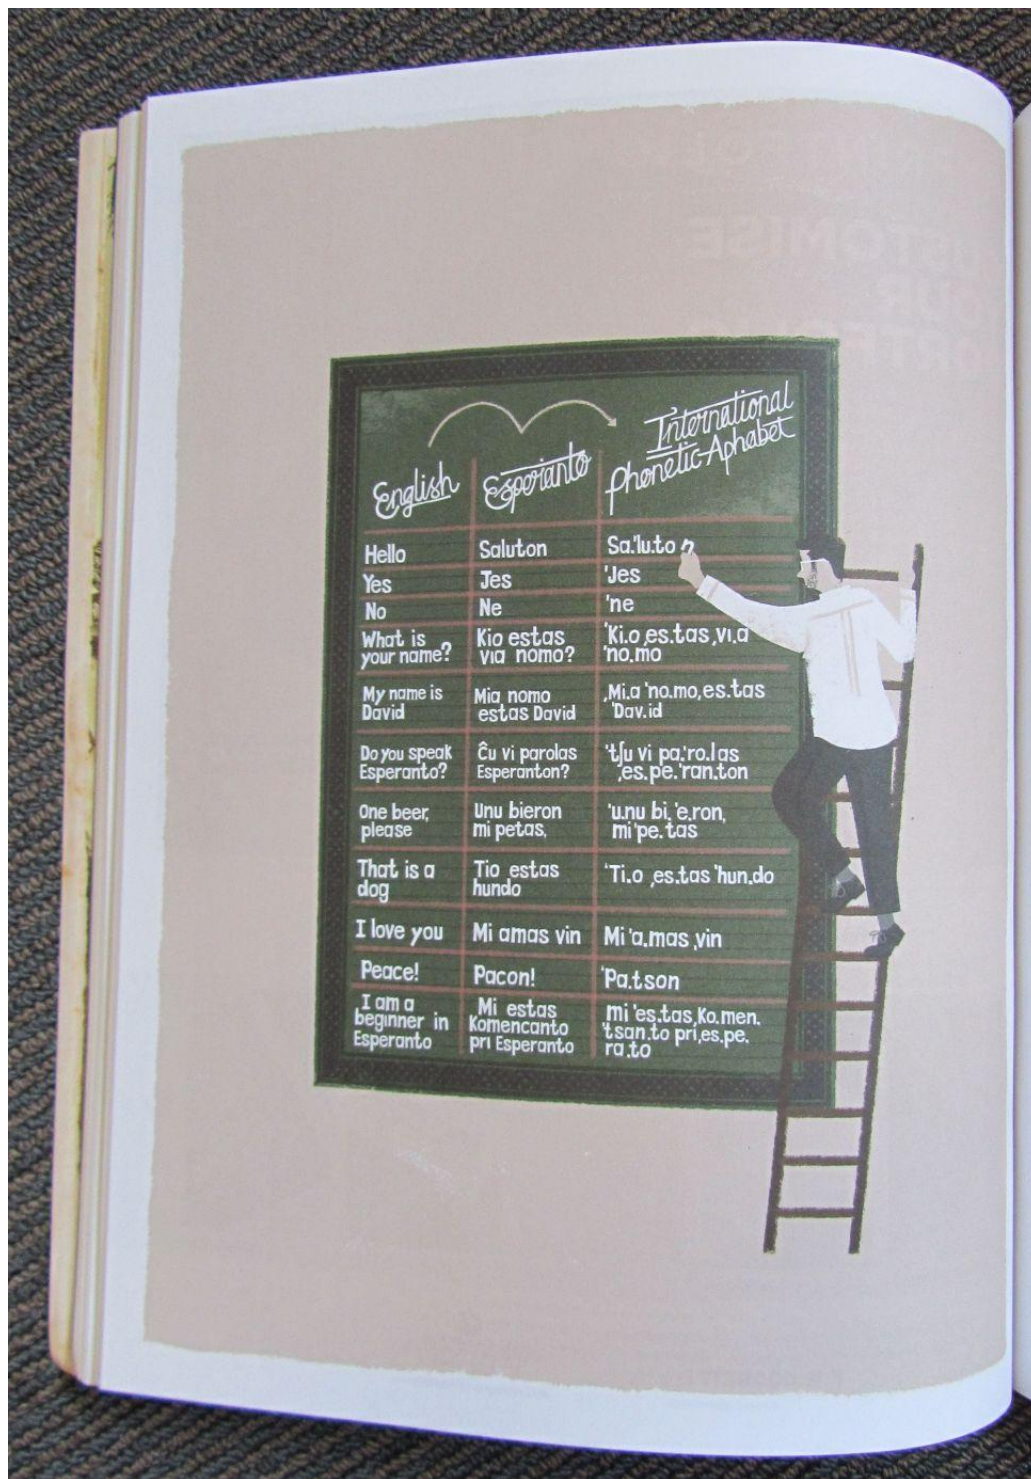 English
Esperanto
International
Phonetic Aphabet
Hello
Saluton
Sa.'lu.to
Yes
Jes
'Jes
No
Ne
'ne
What is
your name?
Kio estas
via nomo?
'Ki.o,es.tas,vi.a
'no.mo
My name is
David
Mia nomo
estas David
,Mi.a 'no.mo,es.tas
'Dav.id
Do you speak
Esperanto?
Ĉu vi parolas
Esperanton?
'tʃu vi pa.'ro.las
,es.pe.'ran.ton
One beer,
please
Unu bieron
mi petas,
'u.nu bi.'e.ron,
mi'pe.tas
That is a
dog
Tio estas
hundo
'Ti.o ,es.tas 'hun.do
I love you
Mi amas vin
Mi 'a.mas ,vin
Peace!
Pacon!
'Pa.tson
I am a
beginner in
Esperanto
Mi estas
Komencanto
pri Esperanto
mi 'es.tas,Ko.men.
'tsan.to pri,es.pe.
ra.to